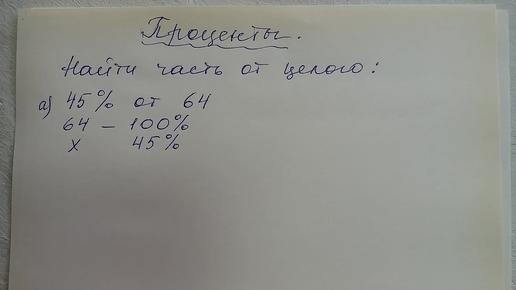 Проценты.
Найти часть от целого:
а) 45% от 64
64 – 100%
х 45%